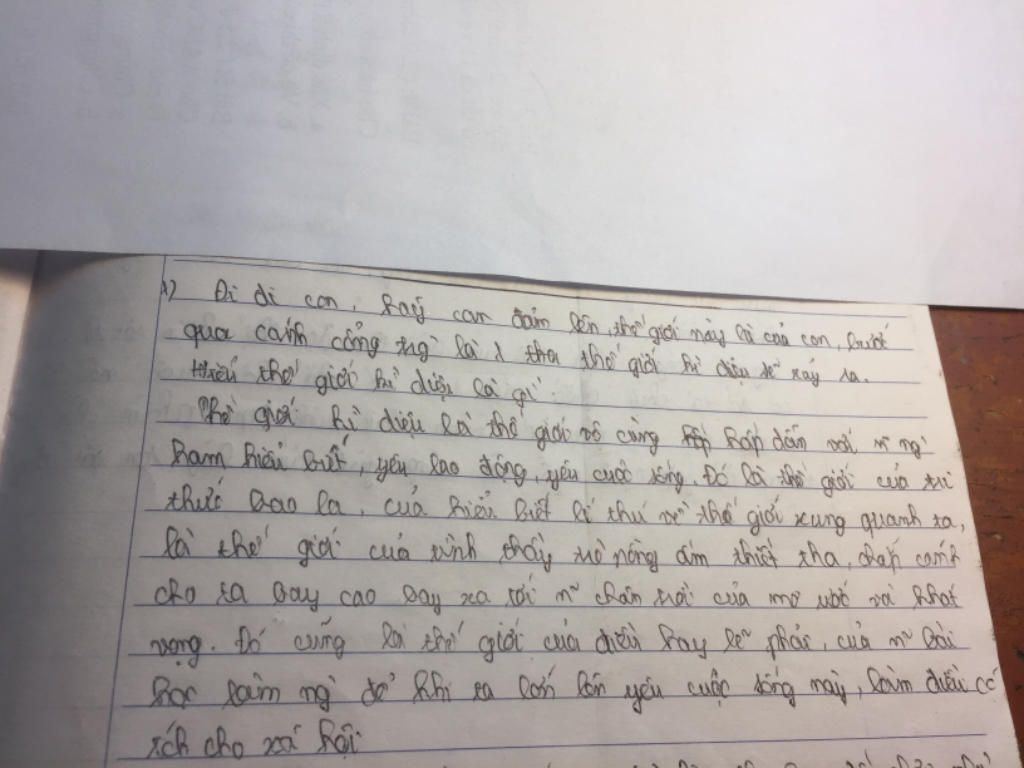 1) Đi đi con, hãy can đảm lên, thế giới này là của con, bước
qua cánh cổng trg là 1 thế giới kì diệu sẽ xảy ra.
Hiểu thế giới kì diệu là gì?
Thế giới kì diệu là thế giới vô cùng hấp dẫn với n~ ng`
ham hiểu biết, yêu lao động, yêu cuộc sống. Đó là thế giới của tri
thức bao la, của hiểu biết lí thú về thế giới xung quanh ta,
là thế giới của tình thầy trò nồng ấm thiết tha, chắp cánh
cho ta bay cao bay xa tới n~ chân trời của mơ ước và khát
vọng. Đó cũng là thế giới của điều hay lẽ phải, của n~ bài
học làm ng` để khi ta lớn lên yêu cuộc sống này, làm điều có
ích cho xã hội.